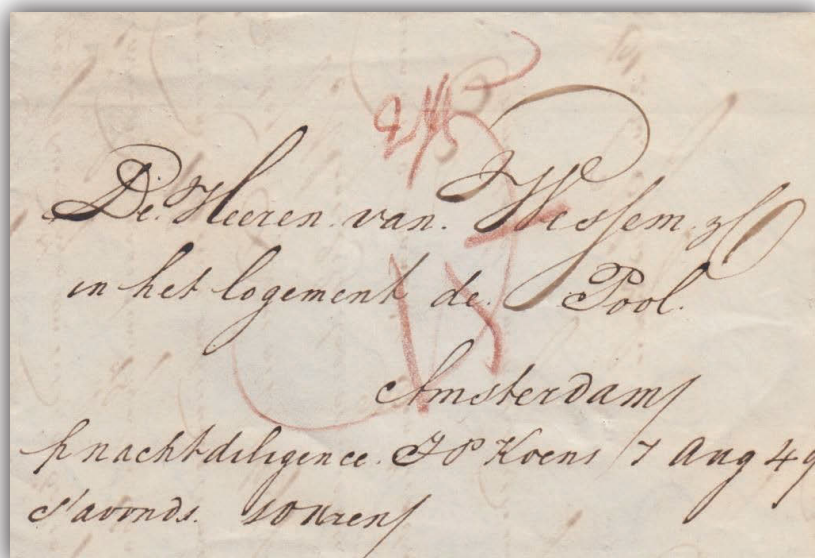 De Heeren van Wessem
in het logement de Pool
Amsterdam
p nachtdiligence J P Koens 7 Aug 49
s'avonds 10 Uren